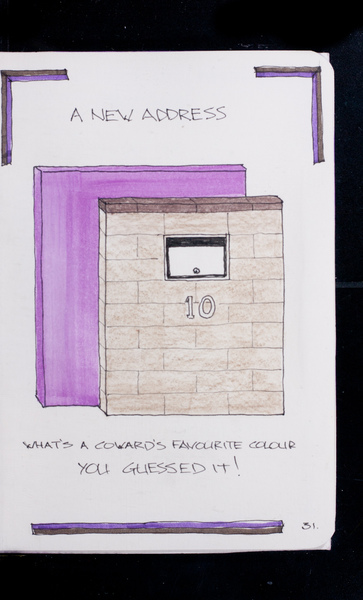 A NEW ADDRESS
10
WHAT'S A COWARD'S FAVOURITE COLOUR
YOU GUESSED IT!
31.